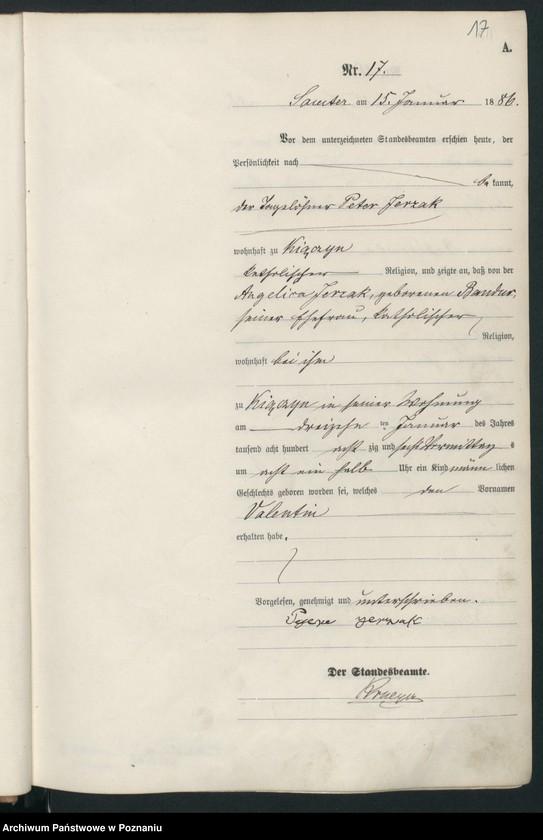 17
A.
Nr. 17.
Samter am 15. Januar 1886.
Vor dem unterzeichneten Standesbeamten erschien heute, der
Persönlichkeit nach
be kannt,
der Tagelöhner Peter Jerzak
wohnhaft zu Kiączyn
katholischer Religion, und zeigte an, daß von der
Angelica Jerzak, geborenen Bandur,
seiner Ehefrau, katholischer
Religion,
wohnhaft bei ihm
zu Kiączyn in seiner Wohnung
am dreizehn ten Januar des Jahres
tausend acht hundert acht zig und sechs Vormittag s
um acht ein halb Uhr ein Kind männ lichen
Geschlechts geboren worden sei, welches den Vornamen
Valentin
erhalten habe.
Vorgelesen, genehmigt und unterschrieben.
Der Standesbeamte.
Archiwum Państwowe w Poznaniu